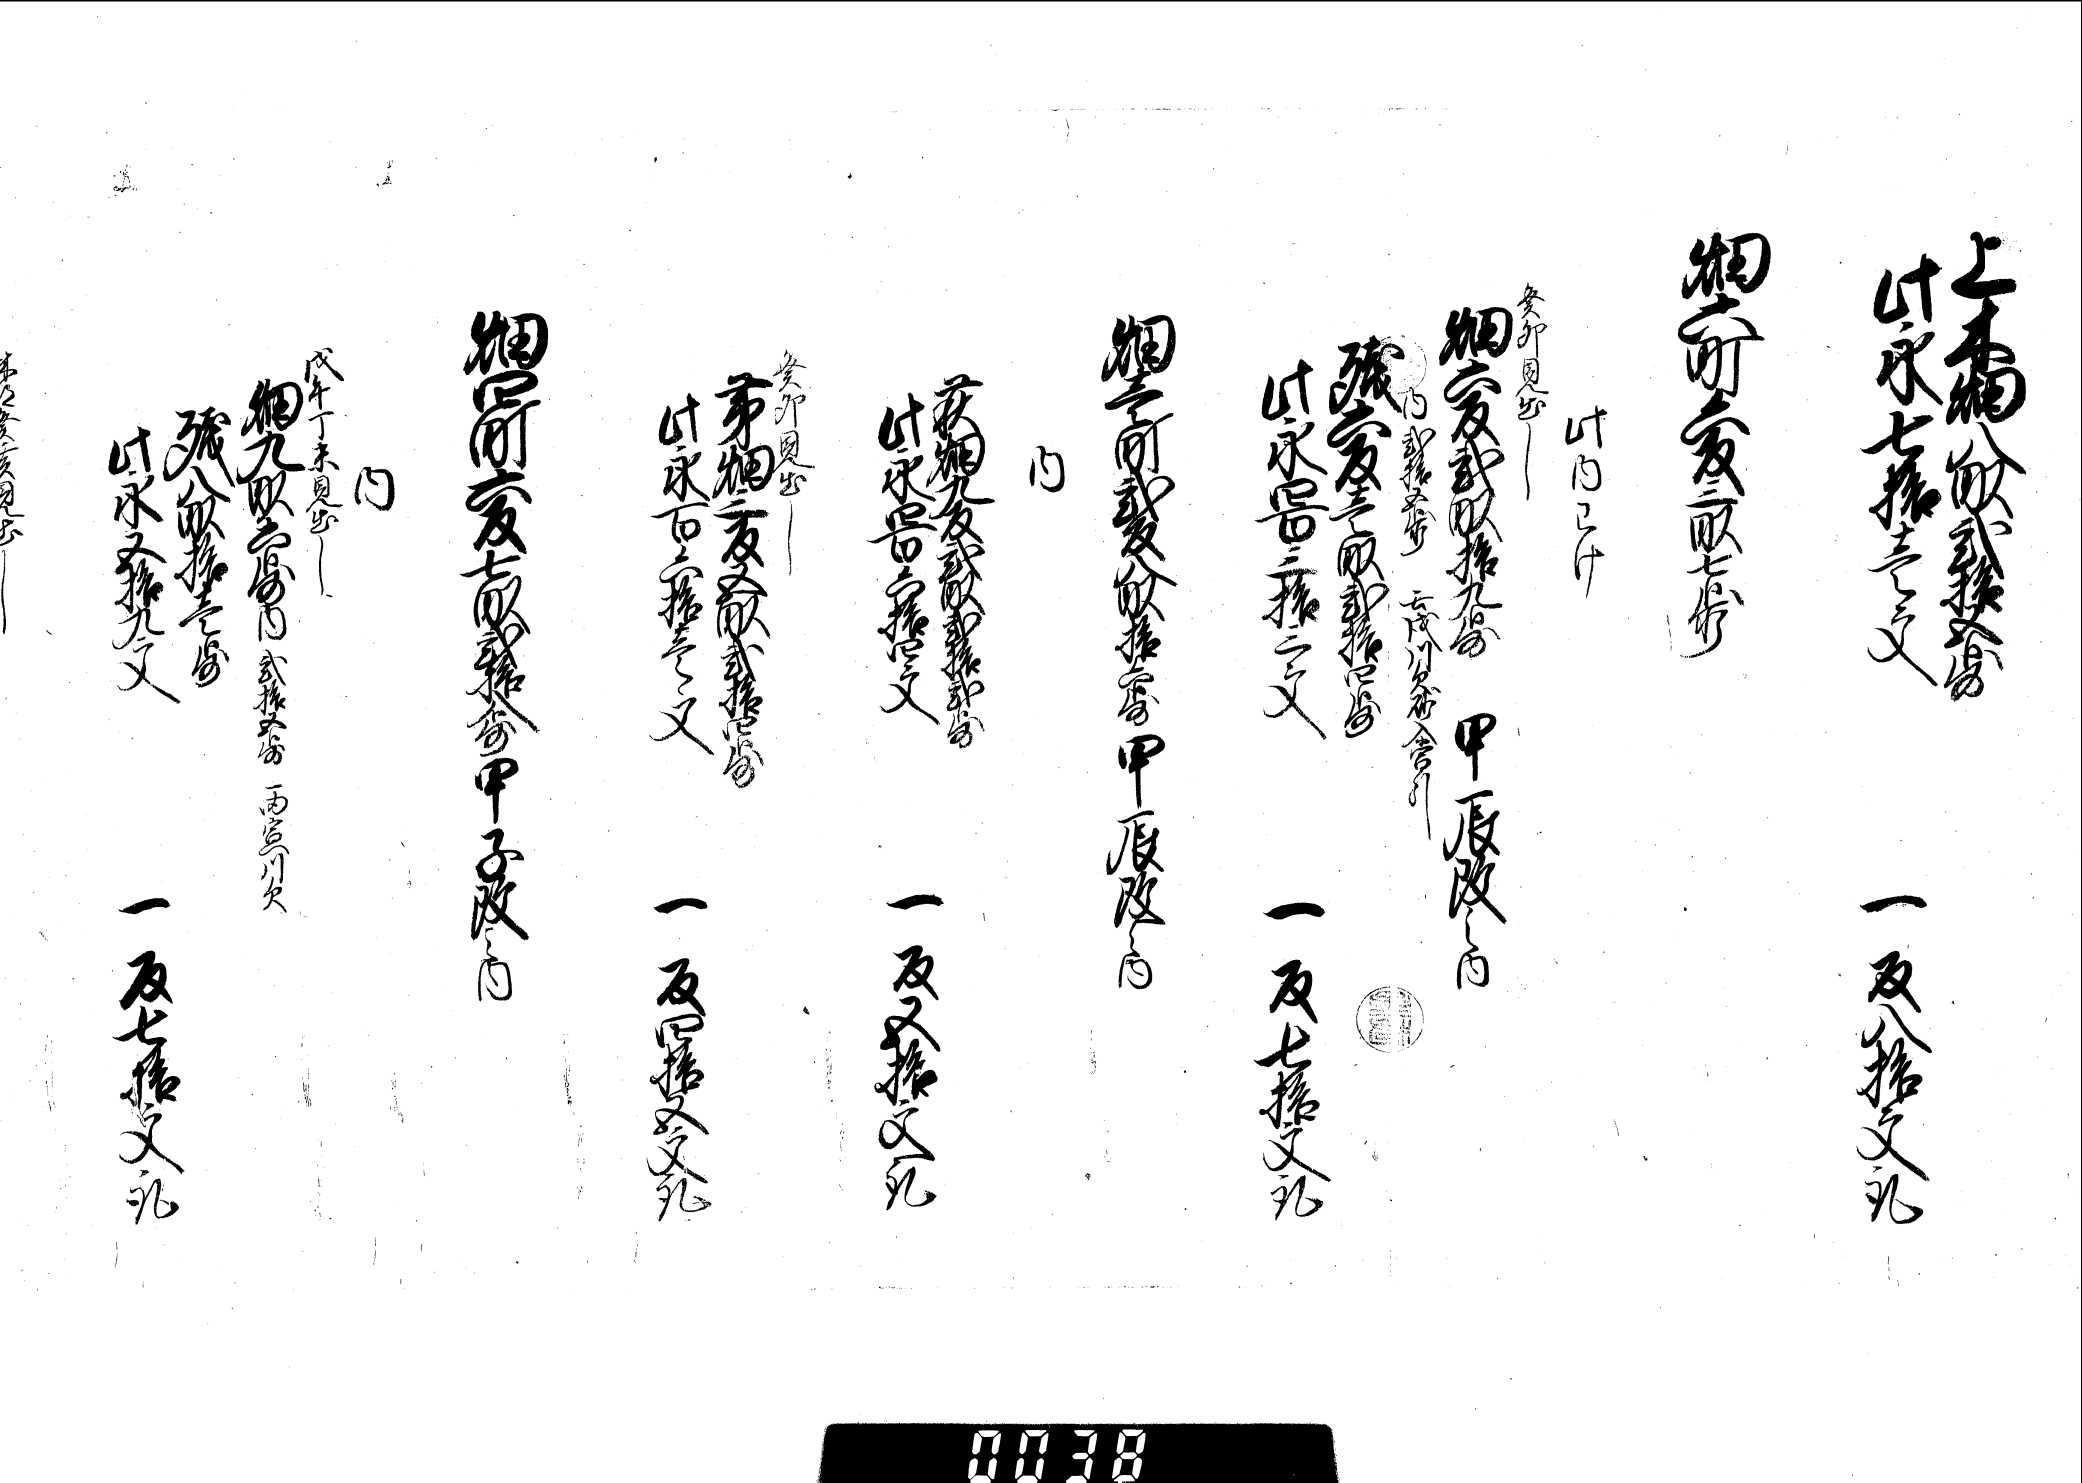 上木畑八畝弐拾五歩
此永七拾壱文　一反八拾文取
畑六町六反三畝七歩
此内わけ
癸卯見出し
畑六反弐畝拾九歩　甲辰改之内
内弐拾五歩　壬戌川欠砂入当引
残六反壱畝弐拾四歩
此永四百三拾三文　一反七拾文取
畑壱町弐反八畝拾六歩　甲辰改之内
内
荻畑九反弐畝弐拾弐歩
此永四百六拾四文　一反五拾文取
癸卯見出し
茅畑三反五畝弐拾四歩
此永百六拾壱文　一反四拾五文取
畑四町六反七畝弐拾八歩　甲子改之内
内
戊午丁未見出し
畑九畝六歩　内弐拾五歩　丙寅川欠
残八畝拾壱歩
此永五拾九文　一反七拾文取
癸亥見出し
0038